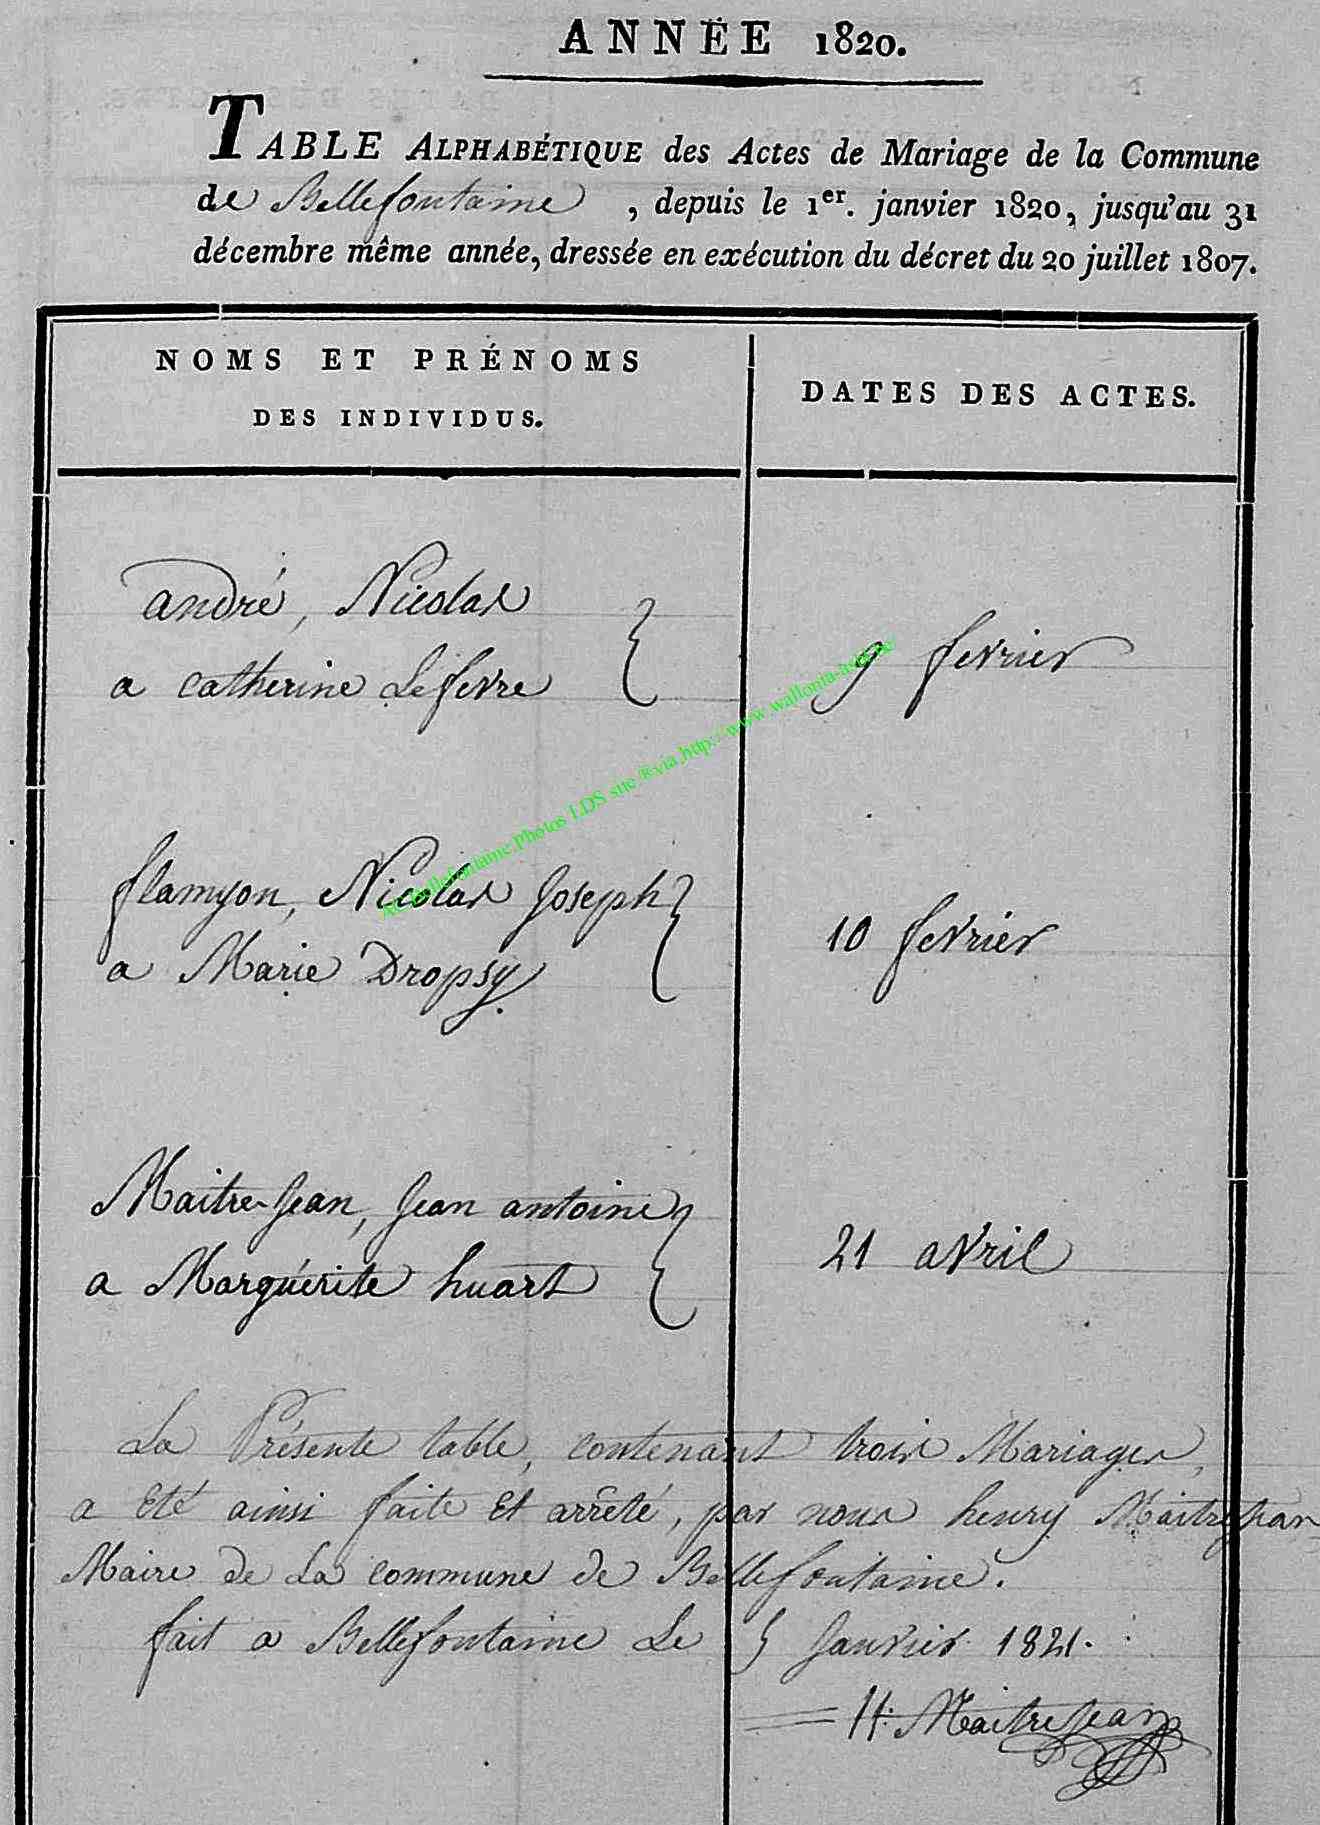 ANNÉE 1820.
TABLE ALPHABÉTIQUE des Actes de Mariage de la Commune
de Bellefontaine, depuis le 1er. janvier 1820, jusqu'au 31
décembre même année, dressée en exécution du décret du 20 juillet 1807.
NOMS ET PRÉNOMS
DES INDIVIDUS.
DATES DES ACTES.
andré, Nicolas
a catherine Lefevre
9 fevrier
flamyon, Nicolas Joseph
a Marie Dropsy
10 fevriér
Maitre-Jean, Jean antoine
a Marguérite huart
21 avril
La Présente table, contenant trois Mariages,
a eté ainsi faite et arrêté, par nous henry MaitreJean
Maire de La commune de Bellefontaine.
fait a Bellefontaine Le Janvier 1821.
H: MaitreJean
Bellefontaine Photos LDS site ®via http://www.wallonia-